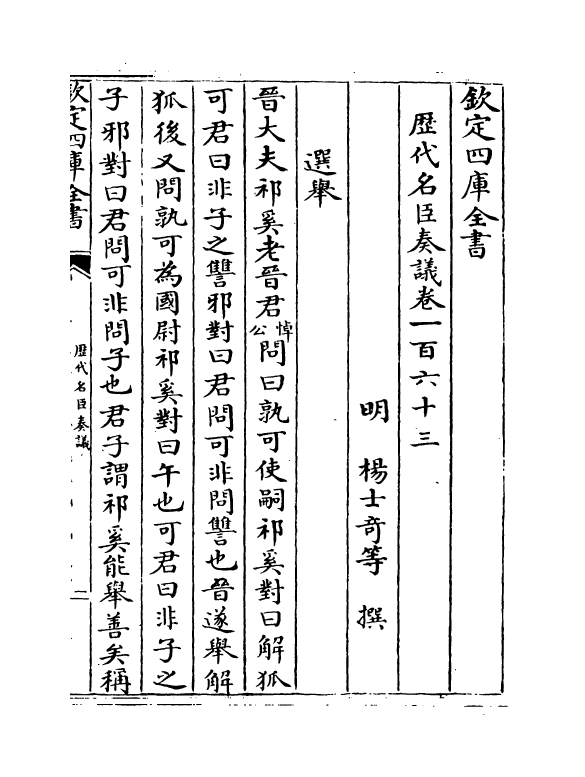 欽定四庫全書
歷代名臣奏議卷一百六十三
明　楊士奇等　撰
選舉
晉大夫祁奚老晉君悼公問曰孰可使嗣祁奚對曰解狐
可君曰非子之讐邪對曰君問可非問讐也晉遂舉解
狐後又問孰可為國尉祁奚對曰午也可君曰非子之
子邪對曰君問可非問子也君子謂祁奚能舉善矣稱
欽定四庫全書
歷代名臣奏議
二